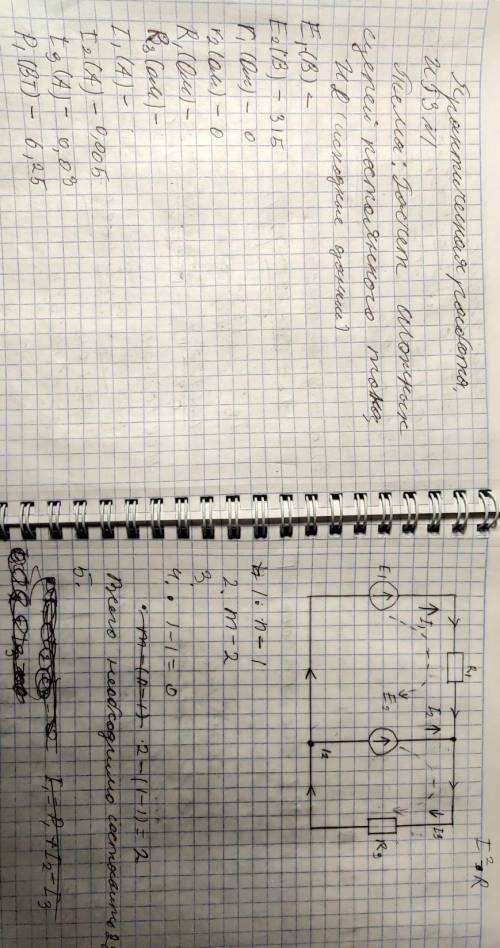 Практическая работа
Тема: Расчет сложных
цепей постоянного тока,
ИД (исходные данные)
E₁(В) –
E₂(В) – 315
r₁(Ом) – 0
r₂(Ом) – 0
R₁(Ом) –
R₃(Ом) –
I₁(А) –
I₂(А) – 0,005
I₃(А) – 0,03
P₁(Вт) – 6,25
I²·R
E₁
I₁
R₁
E₂
I₂
I₃
R₃
1. n – 1
2. m – 2
3.
4. · 1 – 1 = 0
· m – (n – 1) · 2 – (1 – 1) = 2
Всего необходимо составить 2;
5.